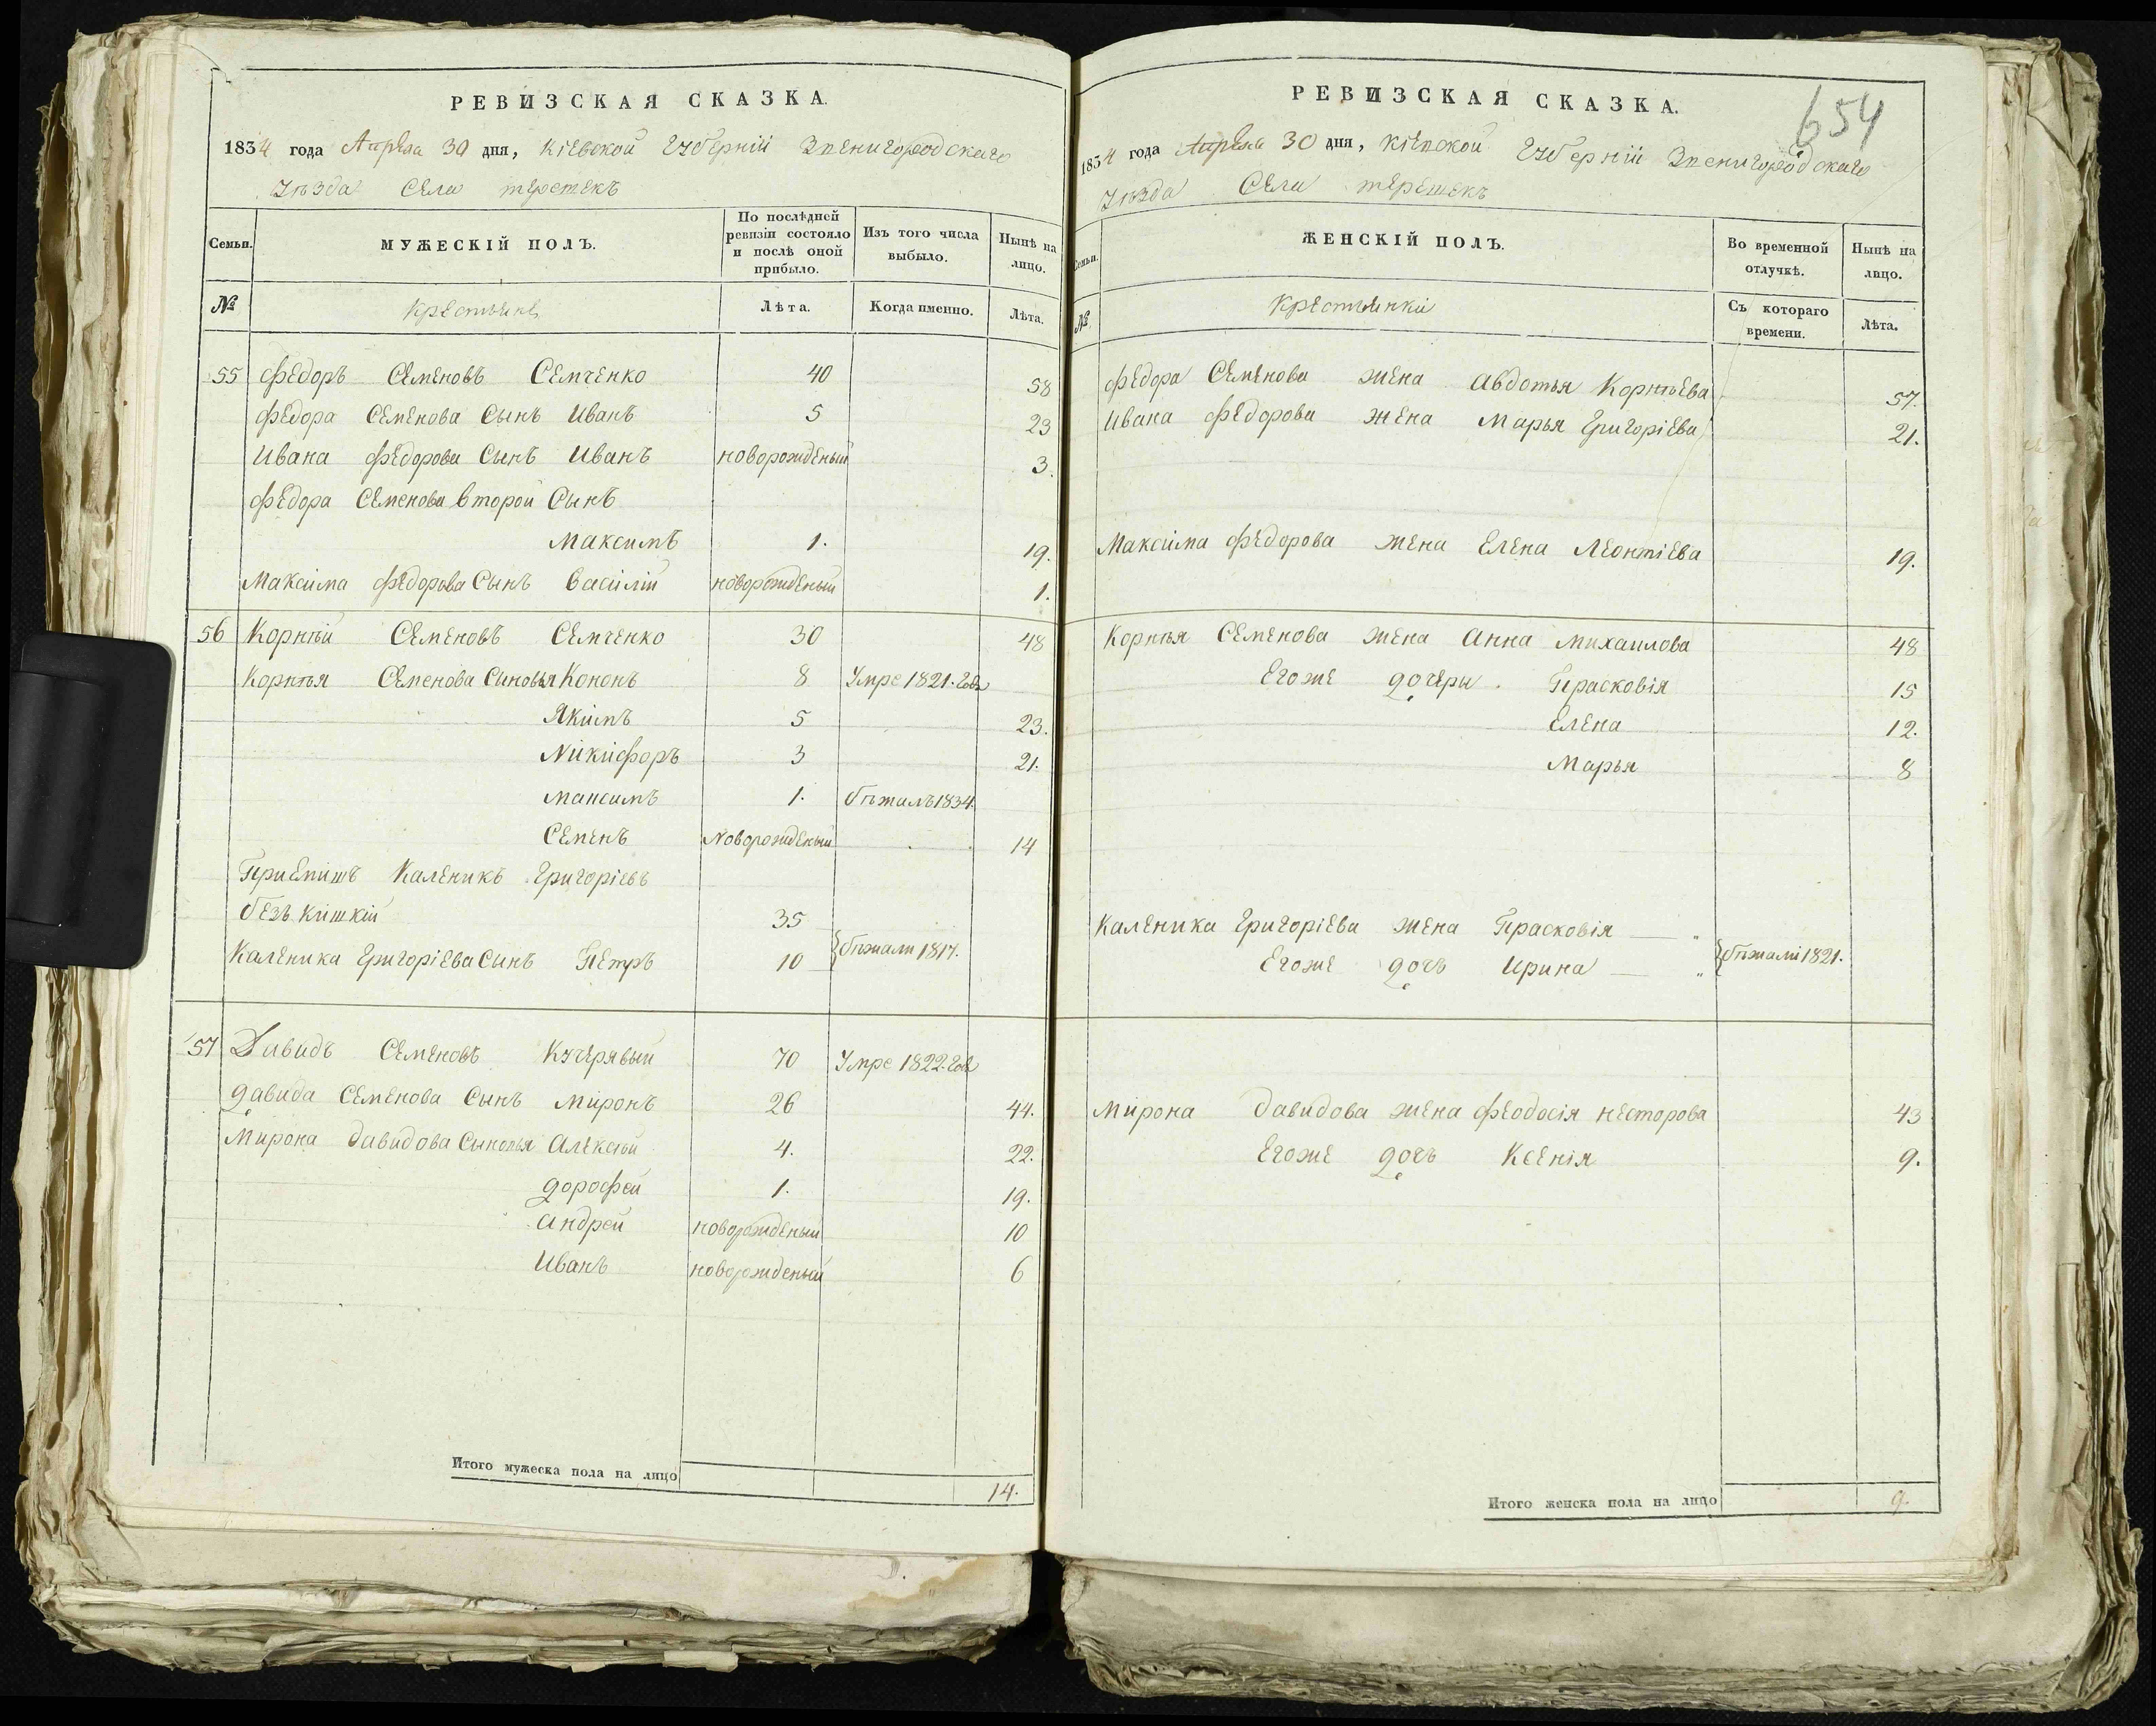 РЕВИЗСКАЯ СКАЗКА.
1834 года Апреля 30 дня, Кіевской Губерніи Звенигородскаго
Уѣзда Села терешекъ
Семьи.
МУЖЕСКІЙ ПОЛЪ.
По послѣдней ревизіи состояло и послѣ оной прибыло.
Изъ того числа выбыло.
Нынѣ на лицо.
№
Крестьяне
Лѣта.
Когда именно.
Лѣта.
55 Федоръ Семеновъ Семченко 40 58
Федора Семенова Сынъ Иванъ 5 23
Ивана Федорова Сынъ Иванъ новорожденый 3.
Федора Семенова второй Сынъ
Максимъ 1. 19.
Максима Федорова Сынъ Василій новорожденый 1.
56 Корнѣй Семеновъ Семченко 30 48
Корнѣя Семенова Сыновья Кононъ 8 Умре 1821. года
Якимъ 5 23.
Никифоръ 3 21.
Максимъ 1. бѣжалъ 1834.
Семенъ Новорожденый 14
Приемишъ Каленикъ Григоріевъ
безъ кишкій 35
Каленика Григоріева Сынъ Петръ 10 бѣжали 1817.
57 Давидъ Семеновъ Кучерявый 70 Умре 1822. года
Давида Семенова Сынъ Миронъ 26 44.
Мирона Давидова Сыновья Алексѣй 4. 22.
Дорофей 1. 19.
Андрей новорожденый 10
Иванъ новорожденый 6
Итого мужеска пола на лицо 14.
654
РЕВИЗСКАЯ СКАЗКА.
1834 года Апреля 30 дня, Кіевской Губерніи Звенигородскаго
Уѣзда Села терешекъ
Семьи.
ЖЕНСКІЙ ПОЛЪ.
Во временной отлучкѣ.
Нынѣ на лицо.
№
Крестьянки
Съ котораго времени.
Лѣта.
Федора Семенова жена Авдотья Корнѣева 57.
Ивана Федорова жена Марья Григоріева 21.
Максима Федорова жена Елена Леонтіева 19.
Корнѣя Семенова жена Анна Михаилова 48
Егоже дочери Прасковія 15
Елена 12.
Марья 8
Каленика Григоріева жена Прасковія — "
Егоже дочъ Ирина — " бѣжали 1821.
Мирона Давидова жена Феодосія Несторова 43
Егоже дочъ Ксенія 9.
Итого женска пола на лицо 9.